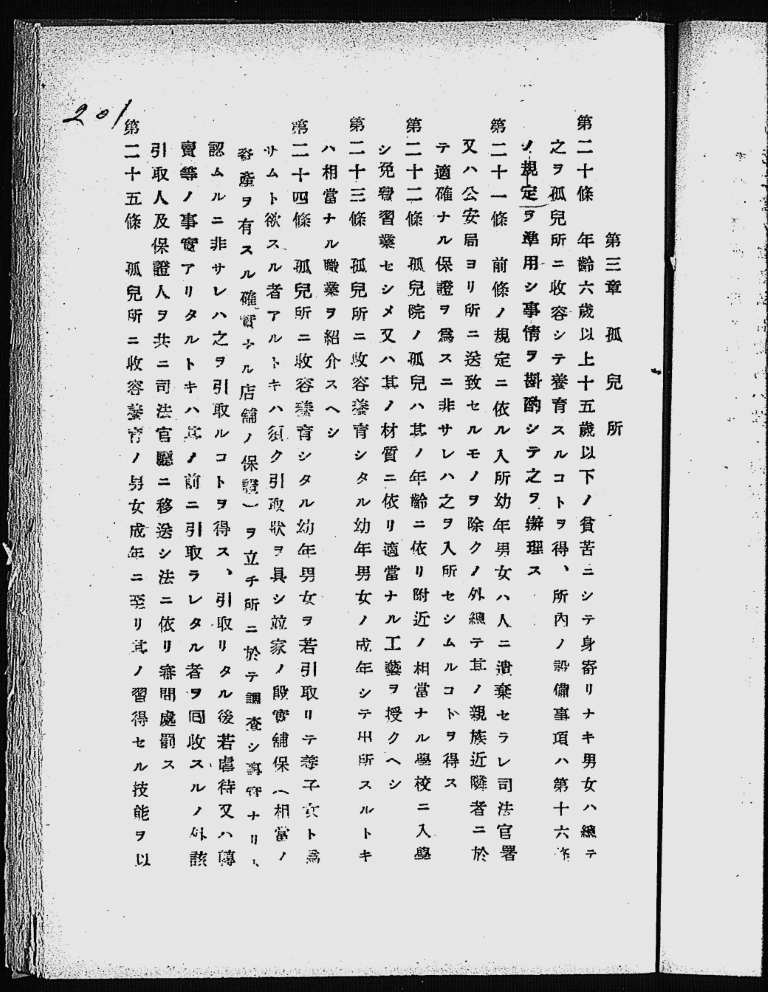 201
第三章 孤兒所
第二十條 年齡六歲以上十五歲以下ノ貧苦ニシテ身寄リナキ男女ハ總テ
之ヲ孤兒所ニ收容シテ養育スルコトヲ得、所內ノ設備事項ハ第十六條
ノ規定ヲ準用シ事情ヲ斟酌シテ之ヲ辦理ス
第二十一條 前條ノ規定ニ依ル入所幼年男女ハ人ニ遺棄セラレ司法官署
又ハ公安局ヨリ所ニ送致セルモノヲ除クノ外總テ其ノ親族近隣者ニ於
テ適確ナル保證ヲ爲スニ非サレハ之ヲ入所セシムルコトヲ得ス
第二十二條 孤兒院ノ孤兒ハ其ノ年齡ニ依リ附近ノ相當ナル學校ニ入學
シ免費習業セシメ又ハ其ノ材質ニ依リ適當ナル工藝ヲ授クヘシ
第二十三條 孤兒所ニ收容養育シタル幼年男女ノ成年シテ出所スルトキ
ハ相當ナル職業ヲ紹介スヘシ
第二十四條 孤兒所ニ收容養育シタル幼年男女ヲ若引取リテ養子女ト爲
サムト欲スル者アルトキハ須ク引取狀ヲ具シ竝家ノ殷實舖保(相當ノ
資產ヲ有スル確實ナル店舖ノ保證)ヲ立チ所ニ於テ調查シ事實ナリト
認ムルニ非サレハ之ヲ引取ルコトヲ得ス、引取リタル後若虐待又ハ轉
賣等ノ事實アリタルトキハ其ノ前ニ引取ラレタル者ヲ回收スルノ外該
引取人及保證人ヲ共ニ司法官廳ニ移送シ法ニ依リ審問處罰ス
第二十五條 孤兒所ニ收容養育ノ男女成年ニ至リ其ノ習得セル技能ヲ以